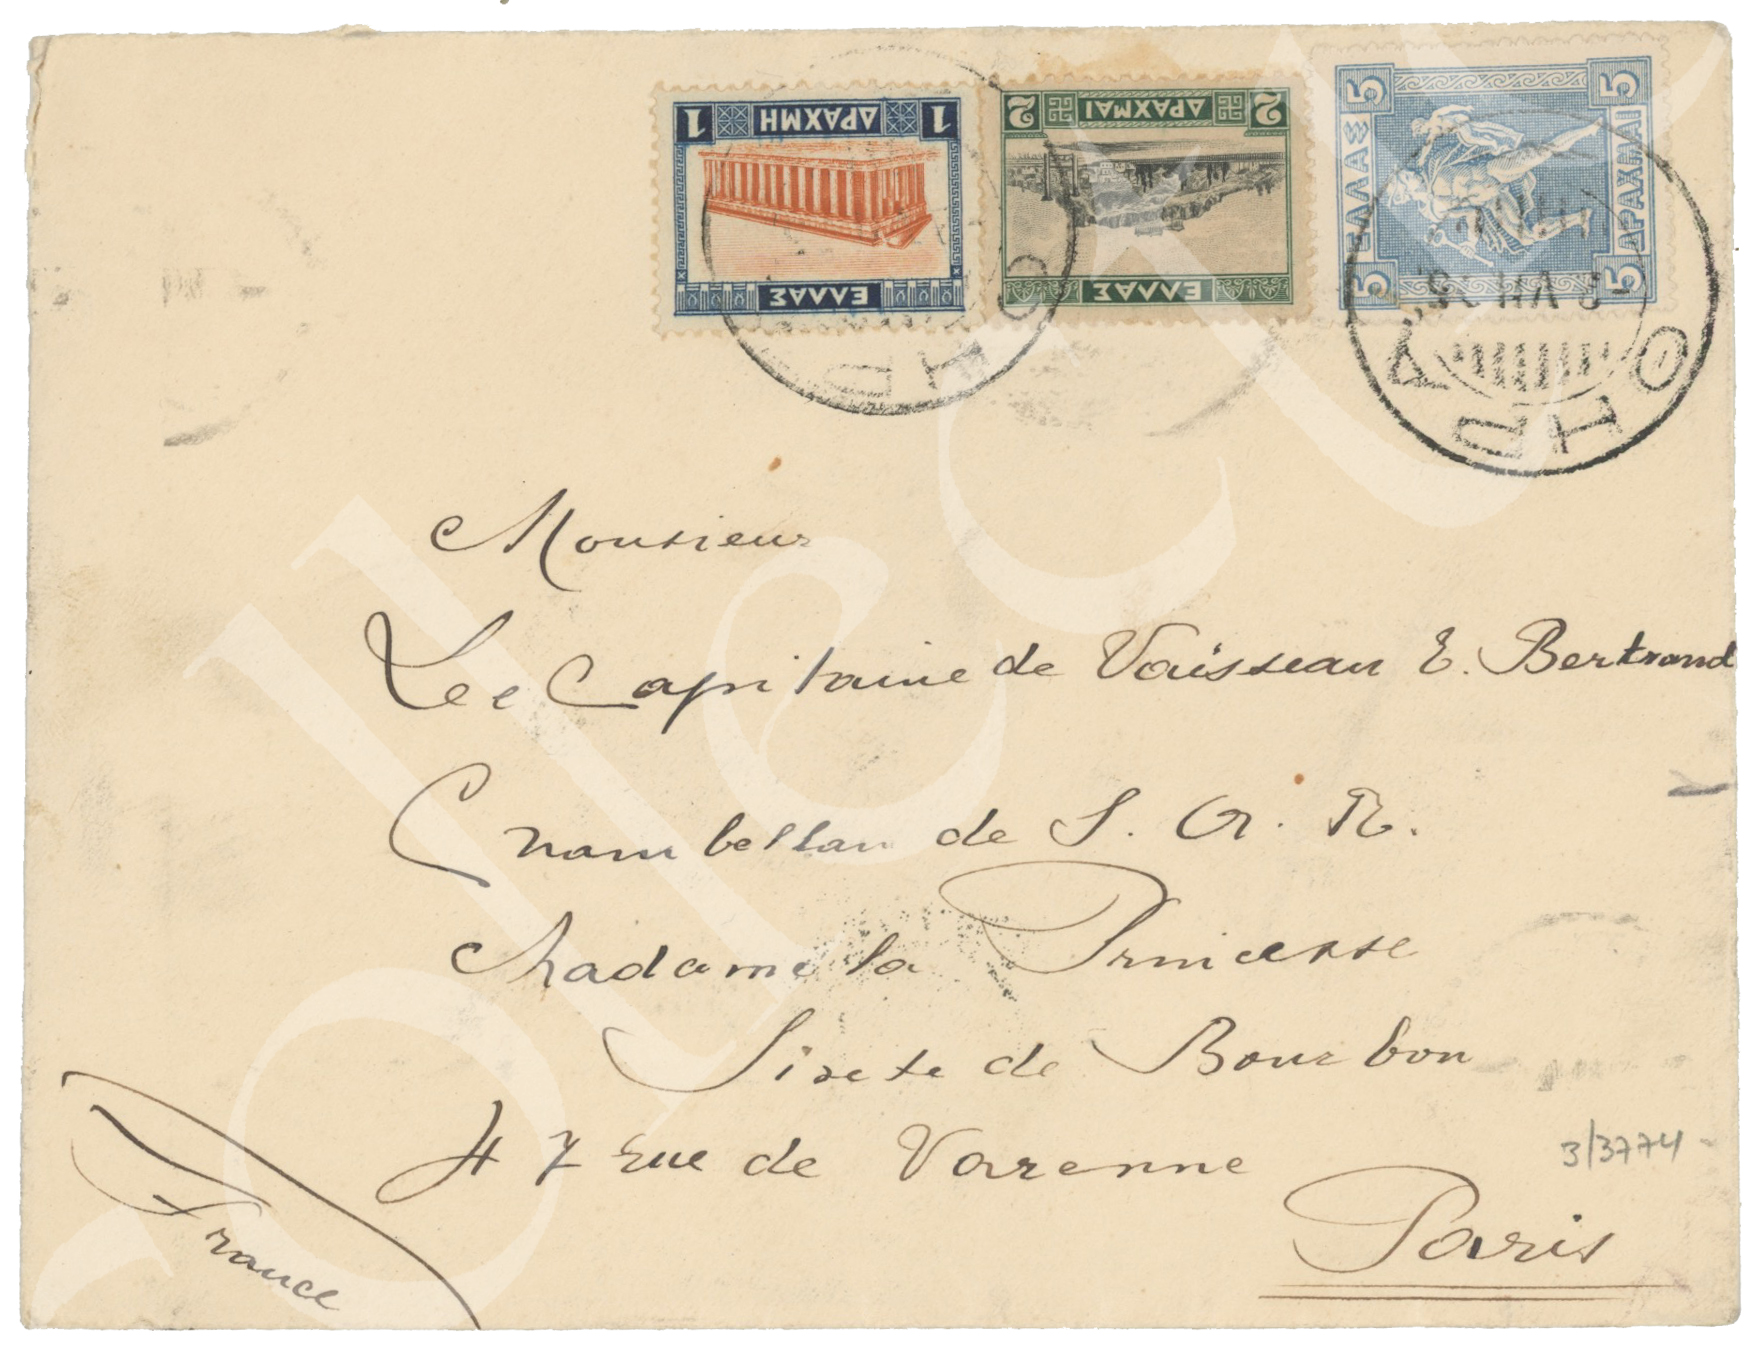 1 ΔΡΑΧΜΗ 1
ΕΛΛΑΣ
2 ΔΡΑΧΜΑΙ 2
ΕΛΛΑΣ
5 ΕΛΛΑΣ 5
5 ΔΡΑΧΜΑΙ 5
Monsieur
Le Capitaine de Vaisseau E. Bertrand
Chambellan de S. A. R.
Madame la Princesse
Sixte de Bourbon
47 rue de Varenne
Paris
France
3/3774